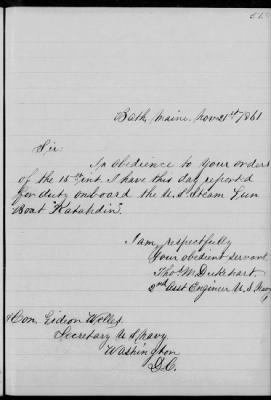 Bath, Maine, Nov 21st 1861
Sir:
In obedience to your orders
of the 15th inst. I have this day reported
for duty onboard the U.S. Steam Gun
Boat "Katahdin".
I am, respectfully
Your obedient servant,
Thos. M. Dukehart
2nd Asst Engineer U.S. Navy
Hon. Gideon Welles
Secretary U S Navy
Washington
D.C.